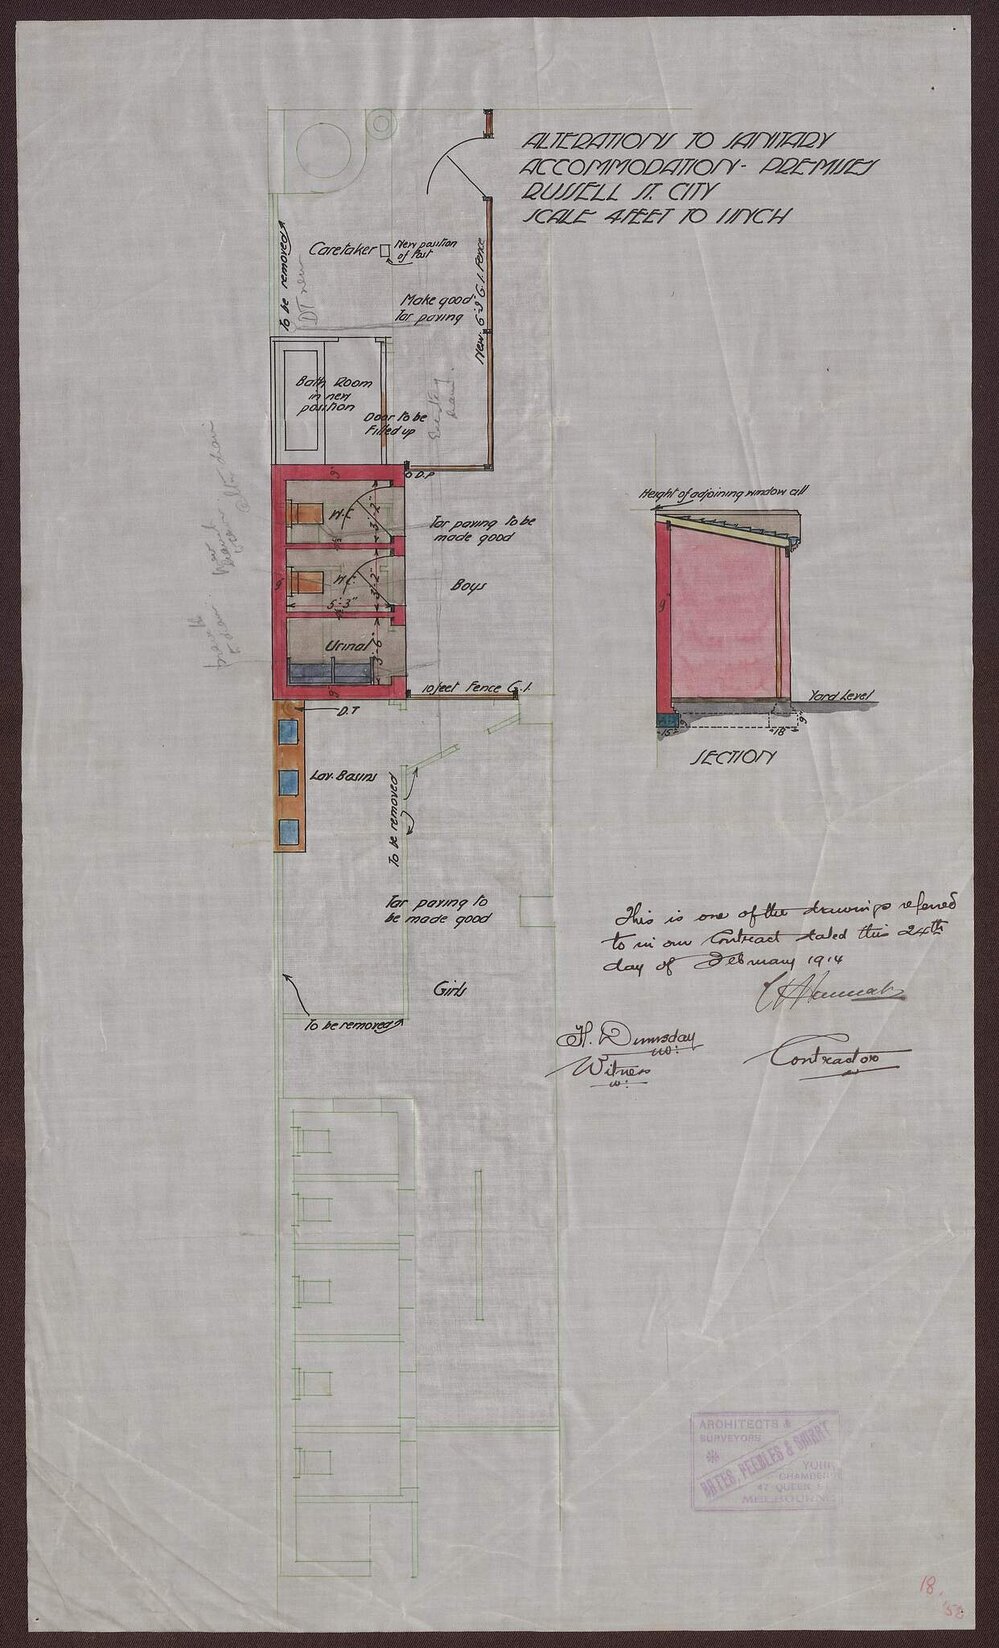 ALTERATIONS TO SANITARY
ACCOMMODATION - PREMISES
RUSSELL ST. CITY
SCALE 4 FEET TO 1 INCH
To be removed
Caretaker
New position
of Post
DT new
Make good
Tar paving
New 6'3" G.I. Fence
Bath Room
in new
position
Door to be
Filled up
9"
O D.P
W.C.
3'-2"
Tar paving to be
made good
W.C.
3'-2"
5'-3"
9"
Boys
Urinal
3'-6"
9"
10 feet Fence G.I.
D.T
Lav. Basins
To be removed
Tar paving to
be made good
Girls
To be removed
Height of adjoining window cill
9"
Yard Level
15"
18"
9"
SECTION
This is one of the drawings referred
to in our Contract dated this 24th
day of February 1914
Contractor
Witness
ARCHITECTS &
SURVEYORS
BATES PEEBLES & SMART
YORK
CHAMBERS
47 QUEEN S
MELBOURNE
18